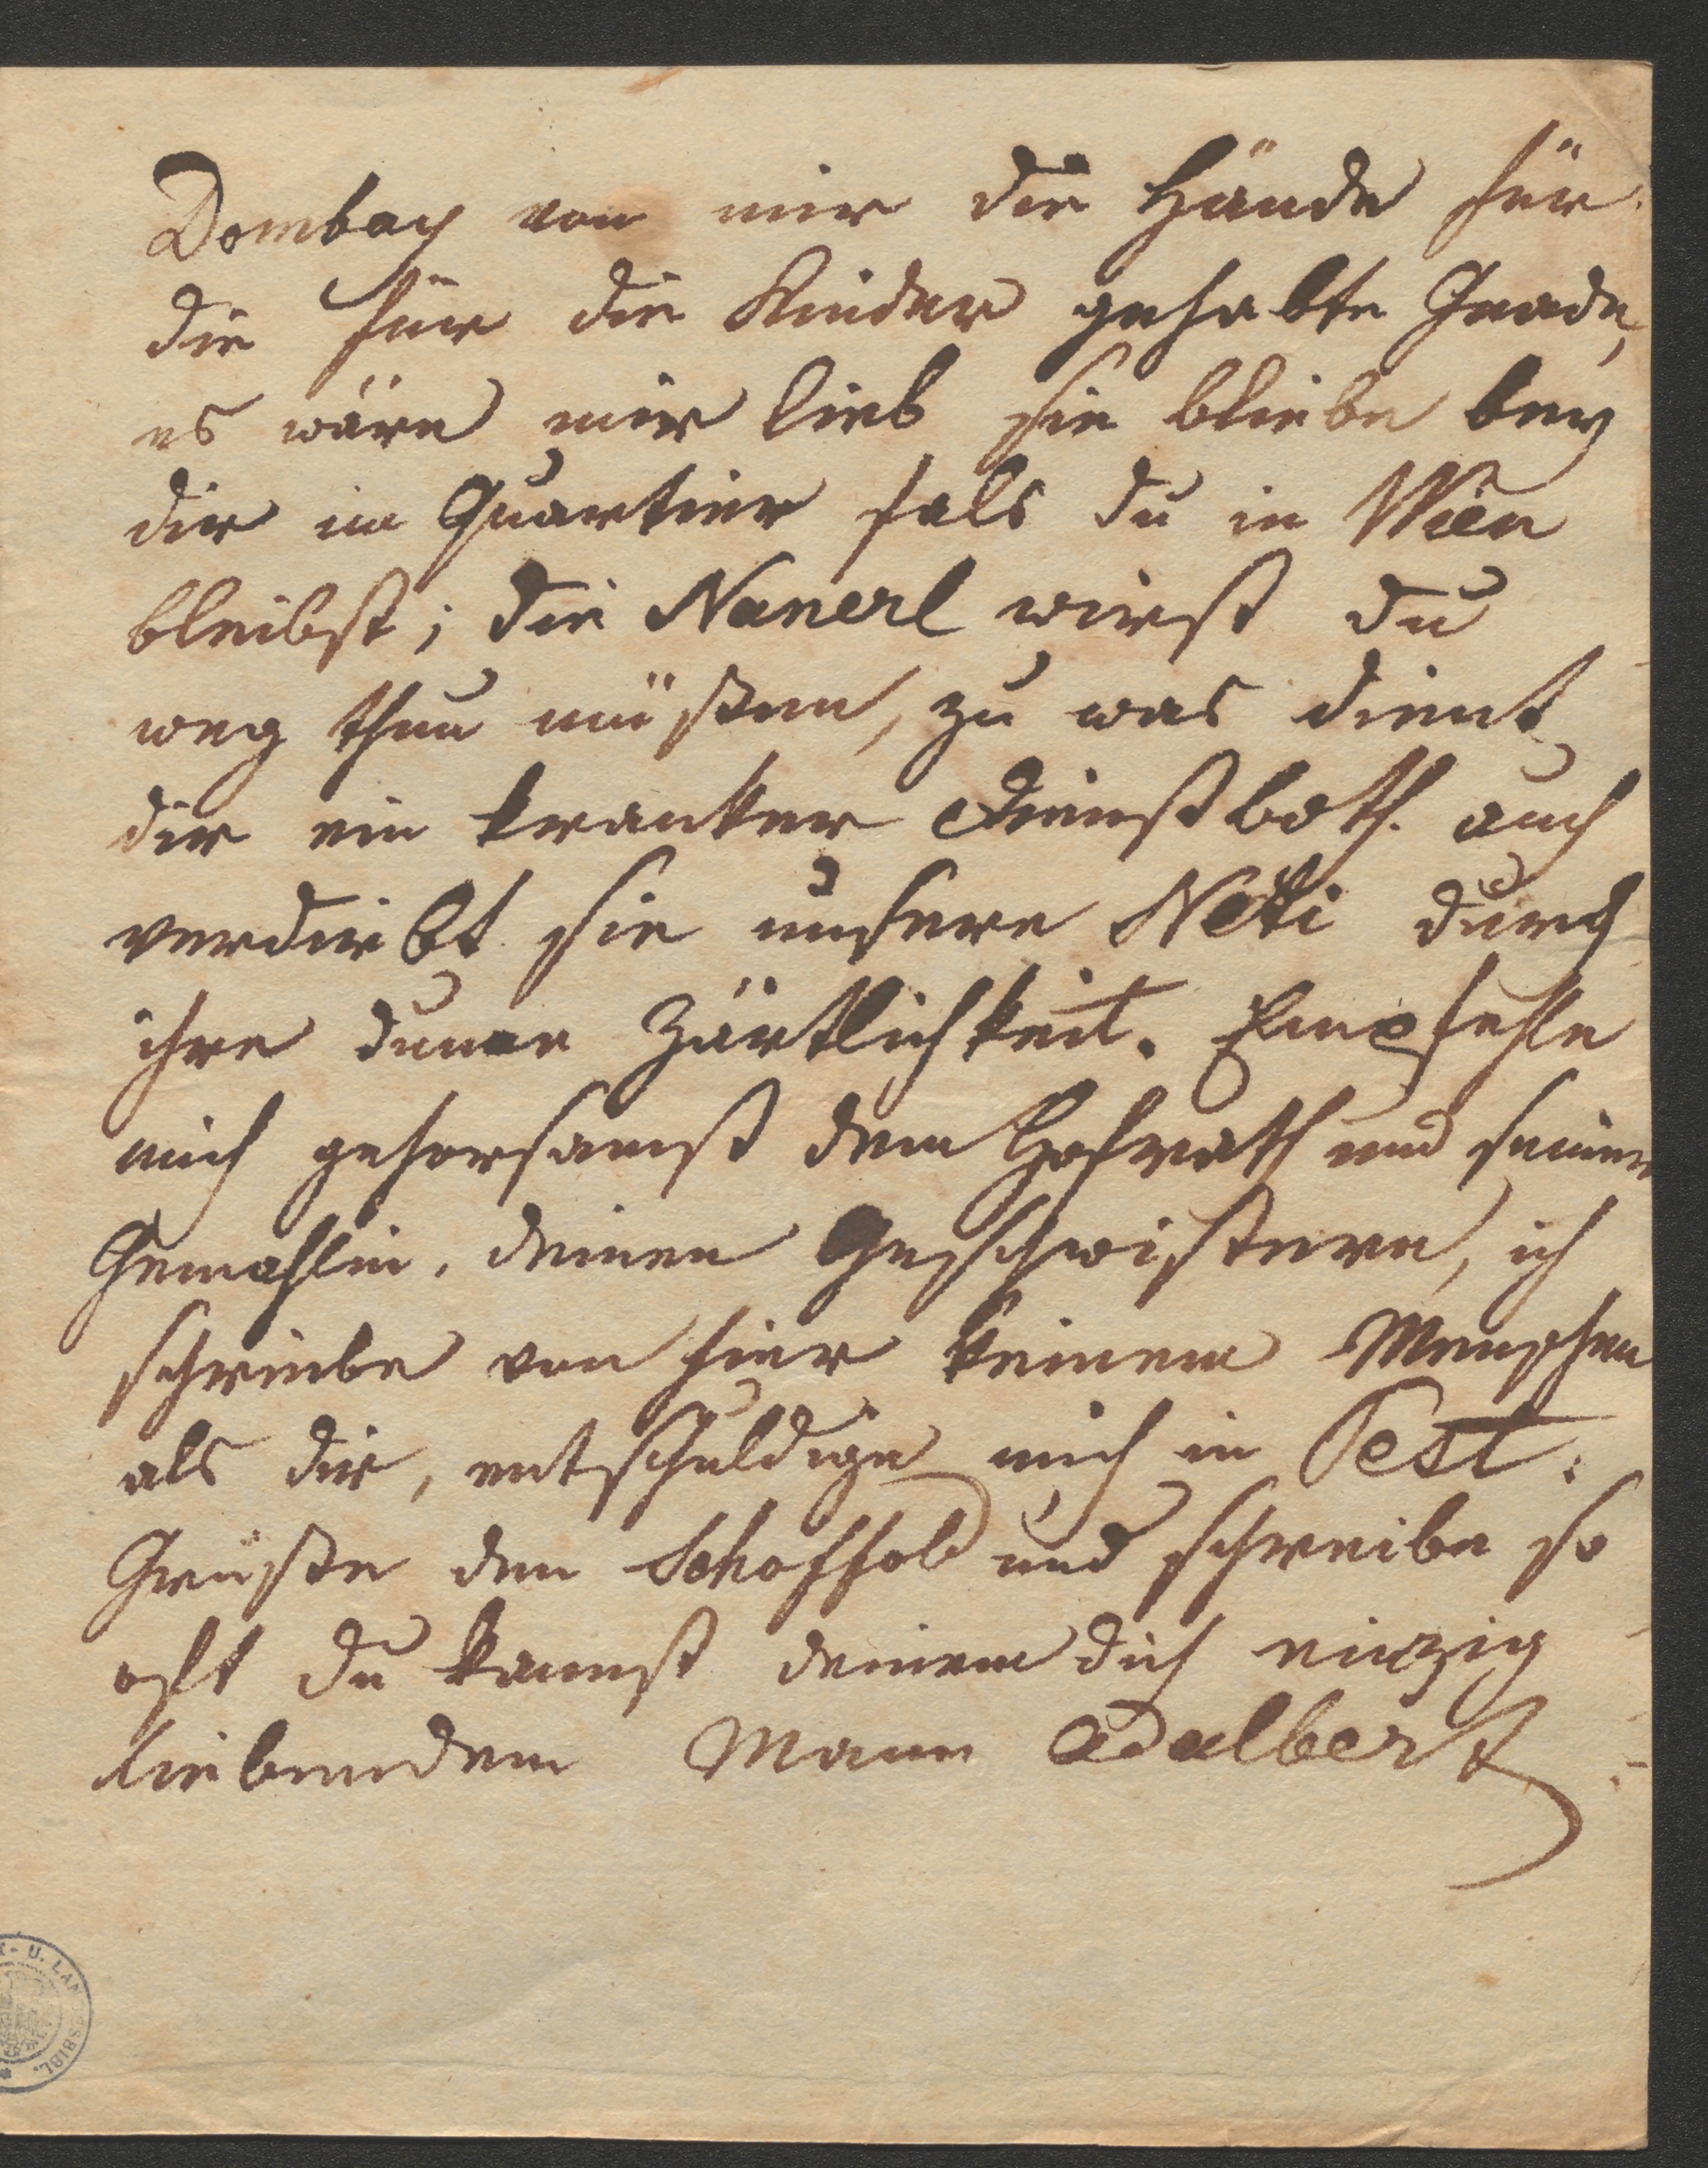 Dombay von mir die Hände für
die für die Kinder gehabte Gnade,
es wäre mir lieb sie bliebe bey
dir im Quartier fals du in Wien
bleibst; die Nanerl wirst du
weg thun müßen, zu was dient
dir ein kranker Dienstboth. auch
verdirbt sie unsere Netti durch
ihre dume Zärtlichkeit. Empfehle
mich gehorsamst dem Hofrath und seiner
Gemahlin, deinen Geschwistern, ich
schreibe von hier keinem Menschen
als dir, entschuldige mich in Pest.
Grüße den und schreibe so
oft du kannst deinem dich einzig
liebenden Mann Adalbert
U. LANDESBIBL.